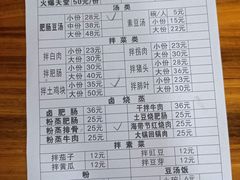 火爆天堂 50元/份
汤类
肥肠豆汤 小份 28元 素豆汤 碗/人 5元
中份 38元 小份 12元
大份 48元 大份 22元
拌菜类
拌白肉 小份 23元 拌拐肉 小份 30元
大份 30元 大份 35元
拌肥肠 小份 25元 拌猪头 小份 23元
大份 35元 大份 30元
拌土鸡块 小份 25元 拌肺叶 小份 23元
大份 45元 大份 30元
卤烧蒸
卤肥肠 36元 干拌牛肉 35元
粉蒸肥肠 25元 土豆烧肥肠 35元
粉蒸排骨 25元 海带节红烧肉 35元
粉蒸牛肉 25元 大锅回锅肉 35元
拌素菜
拌茄子 12元 拌豇豆 12元
拌黄瓜 12元 拌豆芽 12元
粉 豆汤饭